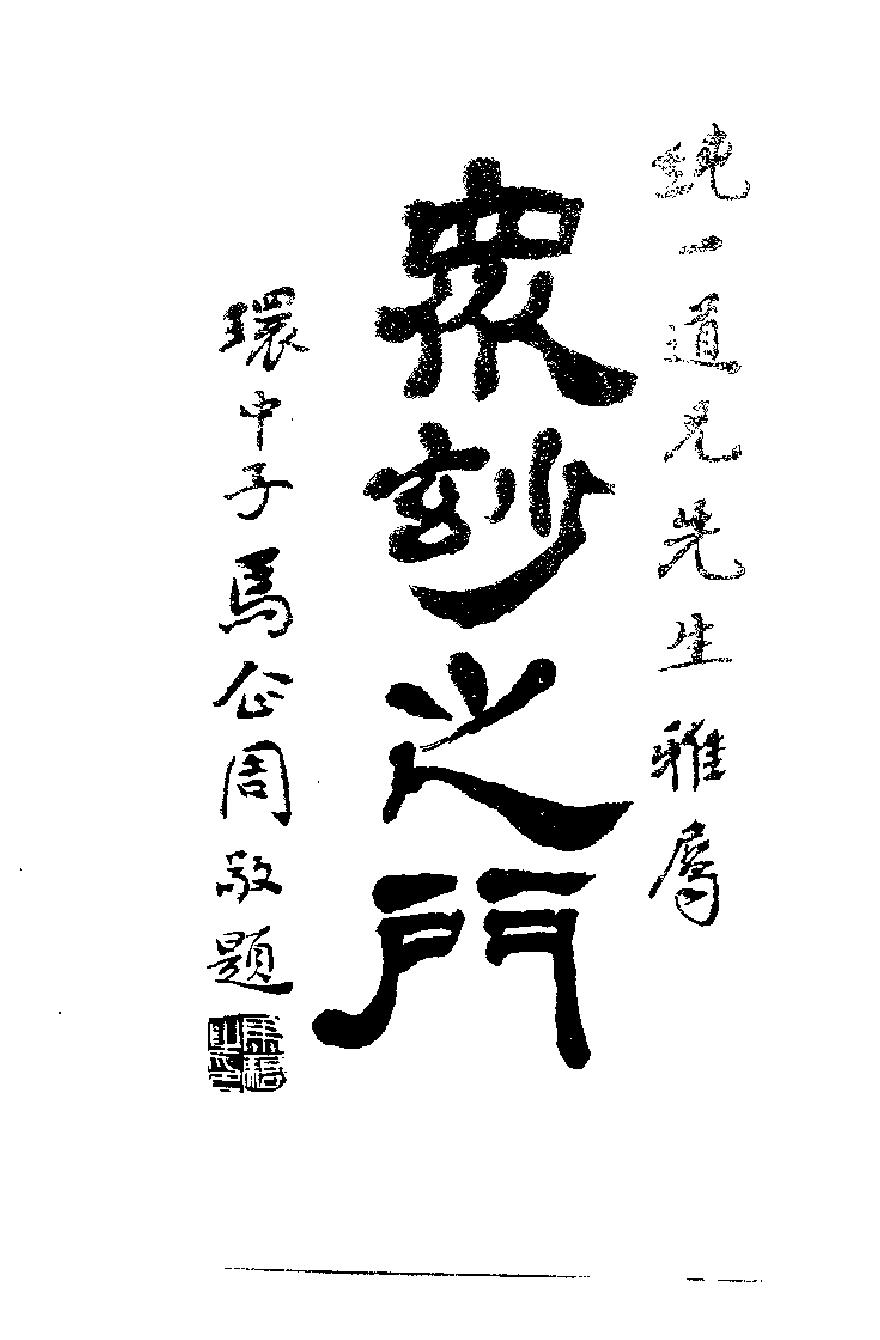 純一道兄先生雅屬
衆玅之門
環中子馬企周敬題